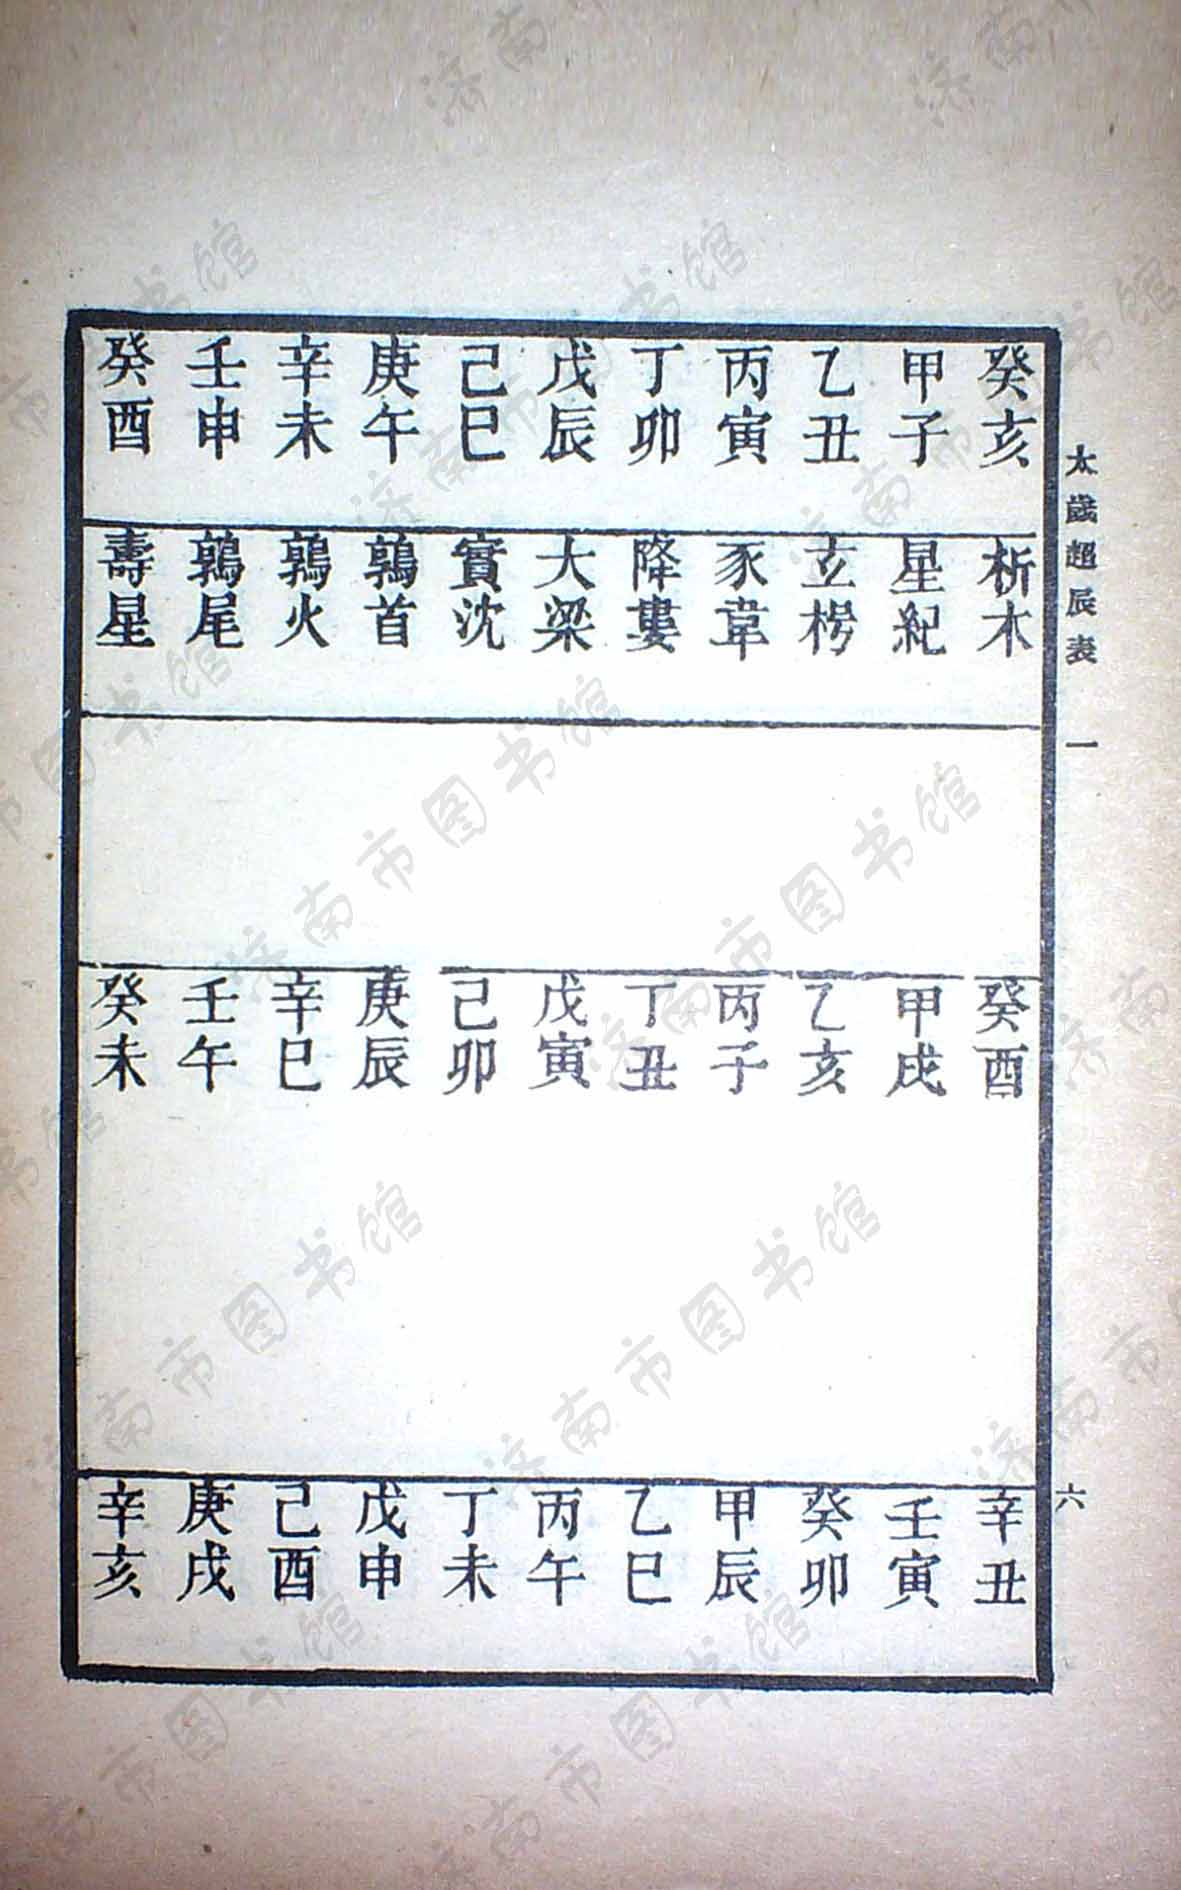 太歲超辰表 一 六
癸亥 甲子 乙丑 丙寅 丁卯 戊辰 己巳 庚午 辛未 壬申 癸酉
析木 星紀 立枵 豕韋 降婁 大梁 實沈 鶉首 鶉火 鶉尾 壽星
癸酉 甲戌 乙亥 丙子 丁丑 戊寅 己卯 庚辰 辛巳 壬午 癸未
辛丑 壬寅 癸卯 甲辰 乙巳 丙午 丁未 戊申 己酉 庚戌 辛亥
济南市图书馆